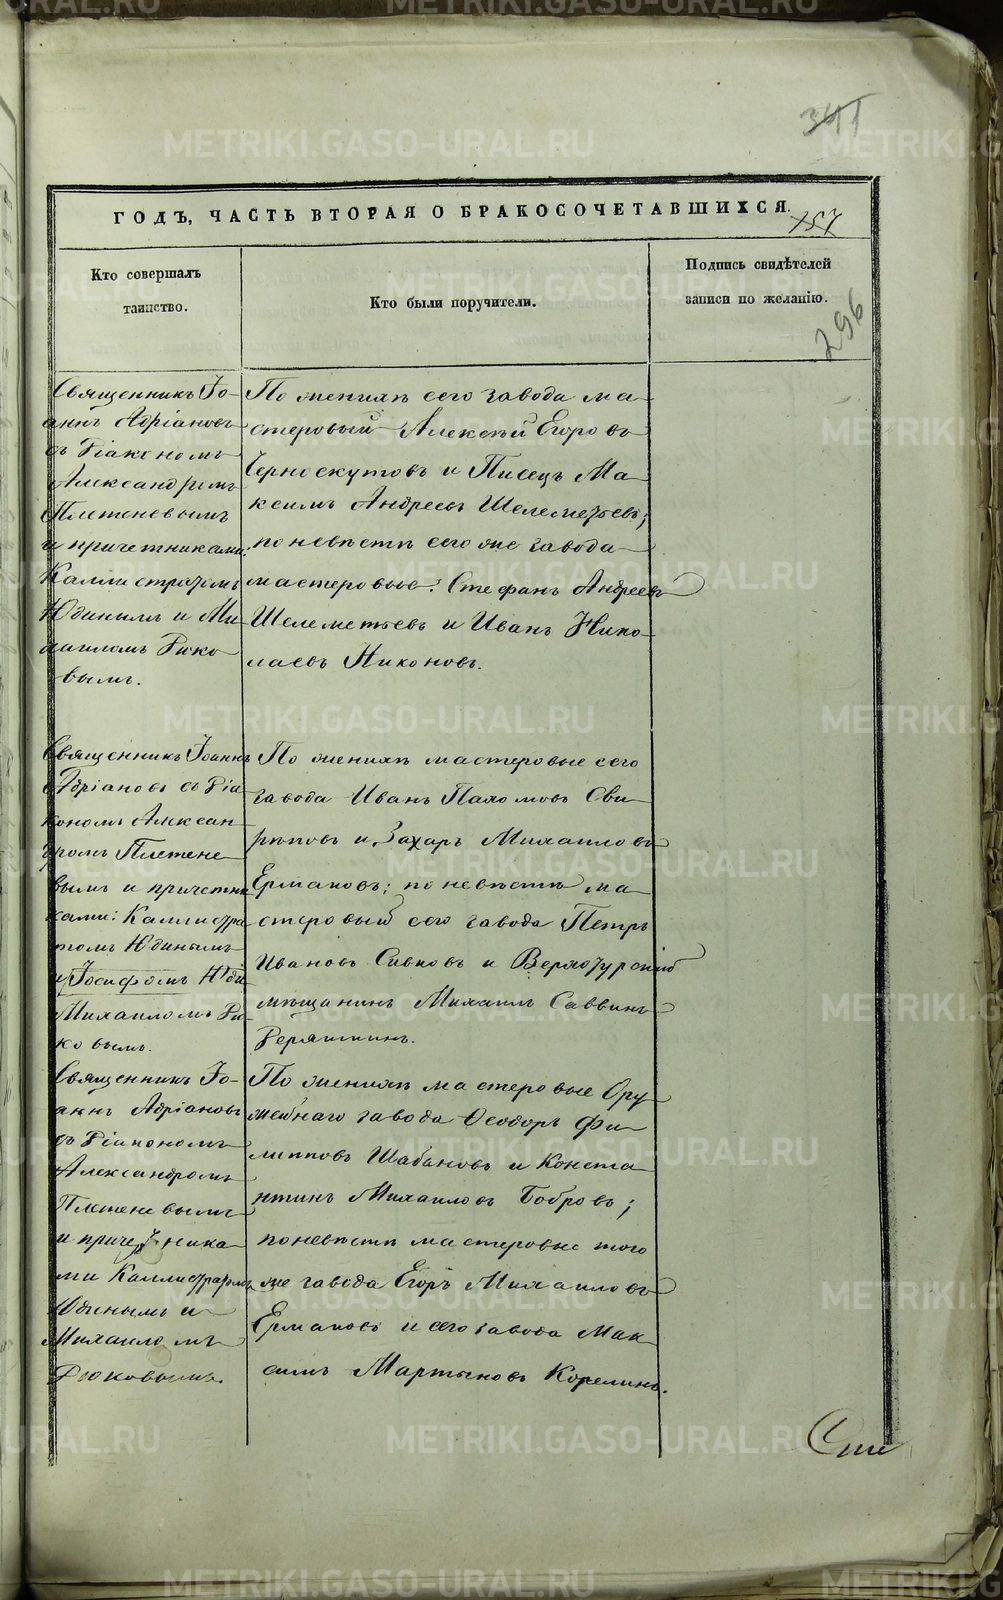 341
ГОДЪ, ЧАСТЬ ВТОРАЯ О БРАКОСОЧЕТАВШИХСЯ.
157
Кто совершалъ
таинство.
Кто были поручители.
Подпись свидѣтелей
записи по желанію.
296
Священникъ Іо-
аннъ Адріановъ
съ Діакономъ
Александромъ
Плетеневымъ
и причетниками:
Каллистратомъ
Юдинымъ и Ми-
хаиломъ Рюко-
вымъ.
По женихѣ сего завода ма-
стеровый Алексѣй Егоровъ
Черноскутовъ и Писецъ Ма-
ксимъ Андреевъ Шелеметьевъ;
по невѣстѣ сего же завода
мастеровые: Стефанъ Андреевъ
Шелеметьевъ и Иванъ Нико-
лаевъ Никоновъ.
Священникъ Іоаннъ
Адріановъ съ Діа-
кономъ Алексан-
дромъ Плетене-
вымъ и причетни-
ками: Каллистра-
томъ Юдинымъ
и Іосифомъ Юди
Михаиломъ Рю-
ковымъ.
По женихѣ мастеровые сего
завода Иванъ Пахомовъ Сви-
рѣповъ и Захаръ Михаиловъ
Ермаковъ; по невѣстѣ ма-
стеровый сего завода Петръ
Ивановъ Сивковъ и Верхотурскій
мѣщанинъ Михаилъ Саввинъ
Священникъ Іо-
аннъ Адріановъ
съ Діакономъ
Александромъ
Плетеневымъ
и причетника-
ми Каллистратомъ
Юдинымъ и
Михаиломъ
Рюковымъ.
По женихѣ мастеровые Ору-
жейнаго завода Ѳеодоръ Фи-
липповъ Шабановъ и Конста-
нтинъ Михаиловъ Бобровъ;
по невѣстѣ мастеровые того
же завода Егоръ Михаиловъ
Ермаковъ и сего завода Мак-
симъ Мартыновъ Корелинъ.
METRIKI.GASO-URAL.RU